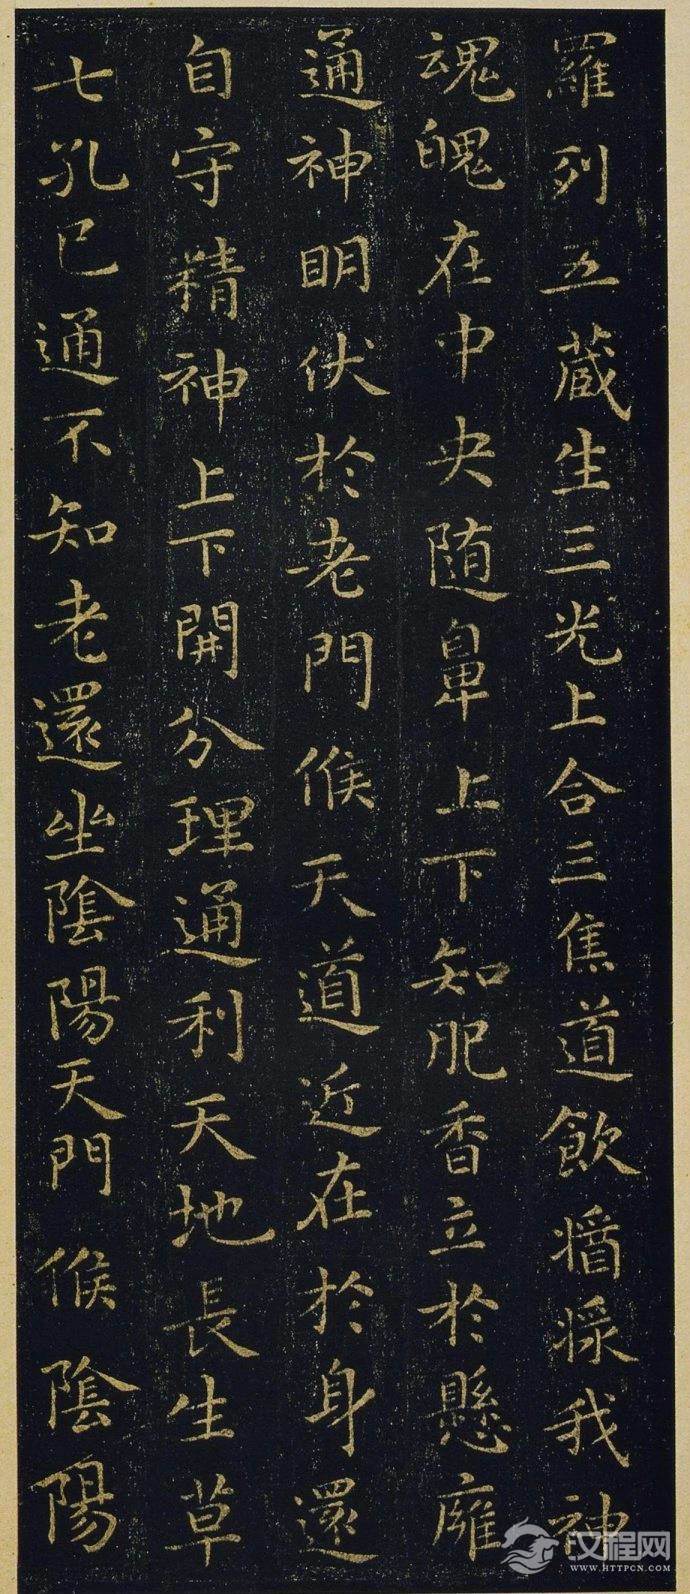 羅列五蔵生三光上合三焦道飲醬漿我神
魂魄在中央随鼻上下知肥香立於懸廱
通神明伏於老門候天道近在於身還
自守精神上下開分理通利天地長生草
七孔已通不知老還坐陰陽天門候陰陽
汉程网
WWW.HTTPCN.COM